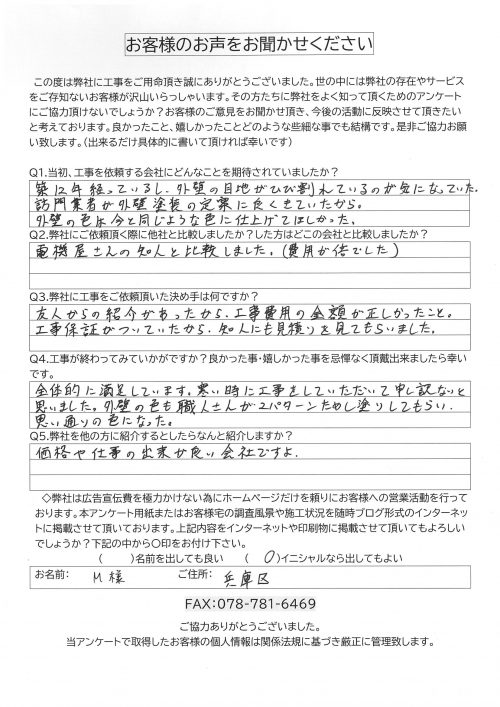 お客様のお声をお聞かせください
この度は弊社に工事をご用命頂き誠にありがとうございました。世の中には弊社の存在やサービス
をご存知ないお客様が沢山いらっしゃいます。その方たちに弊社をよく知って頂くためのアンケート
にご協力頂けないでしょうか？お客様のご意見をお聞かせ頂き、今後の活動に反映させて頂きたい
と考えております。良かったこと、嬉しかったことどのような些細な事でも結構です。是非ご協力お願
い致します。（出来るだけ具体的に書いて頂ければ幸いです）
Q1.当初、工事を依頼する会社にどんなことを期待されていましたか？
築12年経っているし、外壁の目地がひび割れているのが気になっていた。
訪問業者が外壁塗装の定案に良くきていたから。
外壁の色は今と同じような色に仕上げてほしかった。
Q2.弊社にご依頼頂く際に他社と比較しましたか？した方はどこの会社と比較しましたか？
電機屋さんの知人と比較しました。(費用が倍でした)
Q3.弊社に工事をご依頼頂いた決め手は何ですか？
友人からの紹介があったから、工事費用の金額が正しかったこと。
工事保証がついていたから、知人にも見積りを見てもらいました。
Q4.工事が終わってみていかがですか？良かった事・嬉しかった事を忌憚なく頂戴出来ましたら幸い
です。
全体的に満足しています。寒い時に工事をしていただいて申し訳ないと
思いました。外壁の色も職人さんが2パターンためし塗りしてもらい、
思い通りの色になった。
Q5.弊社を他の方に紹介するとしたらなんと紹介しますか？
価格や仕事の出来が良い会社ですよ。
◇弊社は広告宣伝費を極力かけない為にホームページだけを頼りにお客様への営業活動を行って
おります。本アンケート用紙またはお客様宅の調査風景や施工状況を随時ブログ形式のインターネッ
トに掲載させて頂いております。上記内容をインターネットや印刷物に掲載させて頂いてもよろしい
でしょうか？下記の中から〇印をお付け下さい。
(　　)名前を出しても良い　(　O　)イニシャルなら出してもよい
お名前：　M様　ご住所：　兵庫区
FAX：078-781-6469
ご協力ありがとうございました。
当アンケートで取得したお客様の個人情報は関係法規に基づき厳正に管理致します。